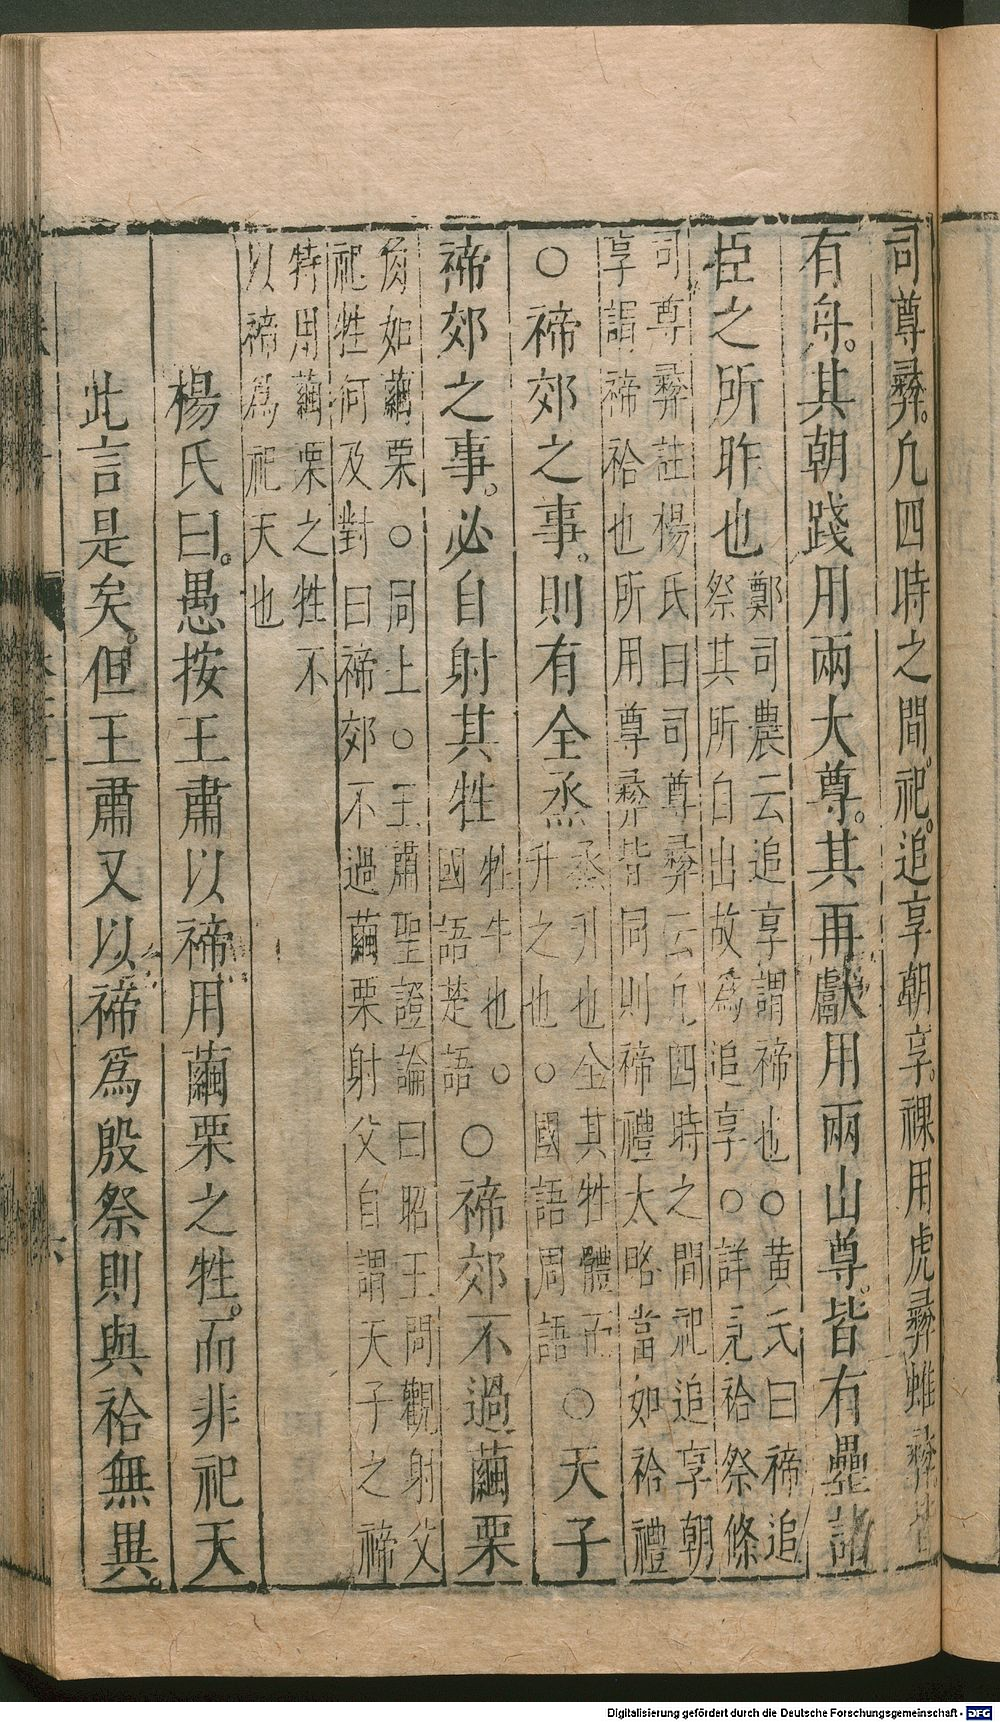 司尊彝。凢四時之間。祀。追享朝享。祼用虎彝蜼彝皆
有舟。其朝踐用兩大尊。其再獻用兩山尊。皆有罍諸
臣之所昨也 鄭司農云追享謂禘也○黄氏曰禘追
祭其所自出故為追享○詳見祫祭條
司尊彝註楊氏曰司尊彝云凢四時之間祀追享朝
享謂禘祫也所用尊彝皆同則禘禮太略當如祫禮
○禘郊之事。則有全烝 烝升也全其牲體而
升之也○國語周語 ○天子
禘郊之事。必自射其牲 牲牛也○
國語楚語 ○禘郊不過繭栗
角如繭栗○同上○王肅聖證論曰昭王問觀射父
祀牲何及對曰禘郊不過繭栗射父自謂天子之禘
特用繭栗之牲不
以禘為祀天也
楊氏曰。愚按王肅以禘用繭栗之牲。而非祀天
此言是矣。但王肅又以禘為殷祭則與祫無異。
六
Digitalisierung gefördert durch die Deutsche Forschungsgemeinschaft - DFG